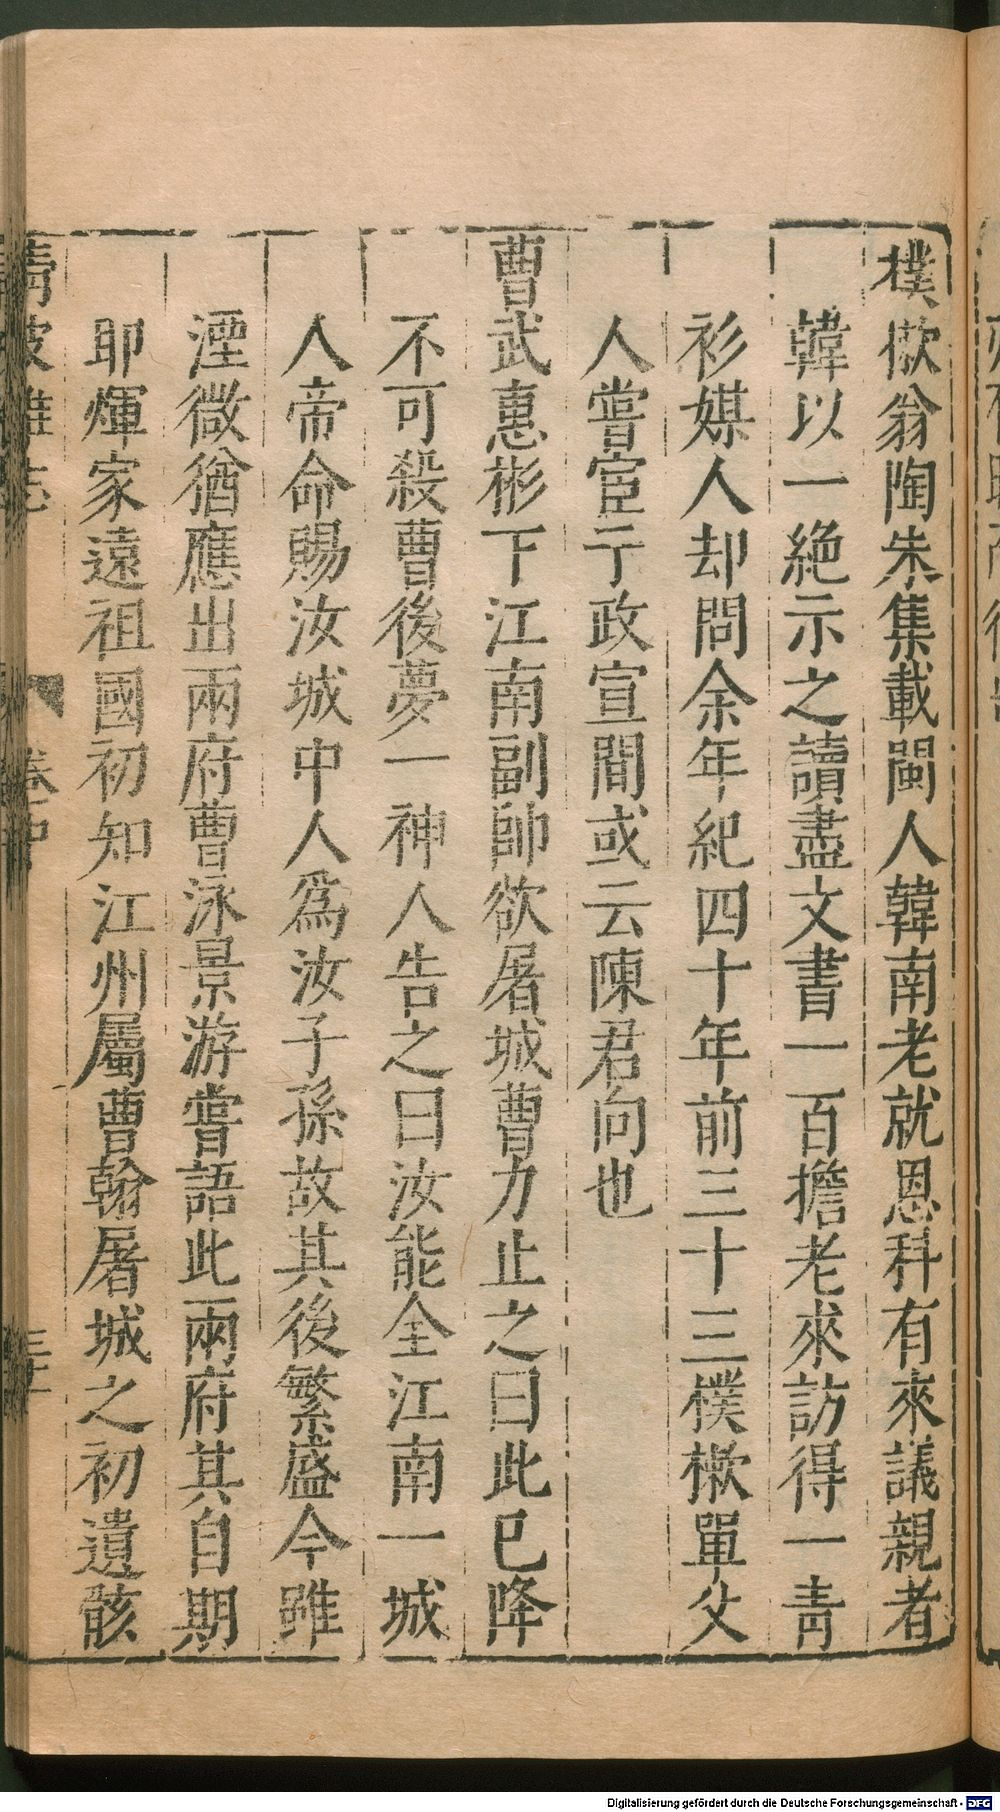 樸樕翁陶朱集載閩人韓南老就恩科有來議親者
韓以一絶示之讀盡文書一百擔老來訪得一青
衫媒人却問余年紀四十年前三十三樸樕單父
人嘗宦于政宣間或云陳君向也
曹武惠彬下江南副帥欲屠城曹力止之曰此已降
不可殺曹後夢一神人告之曰汝能全江南一城
人帝命賜汝城中人爲汝子孫故其後繁盛今雖
湮微猶應出兩府曹泳景游嘗語此兩府其自期
耶煇家遠祖國初知江州屬曹翰屠城之初遺骸
清波雜志
卷中
三十
Digitalisierung gefördert durch die Deutsche Forschungsgemeinschaft - DFG